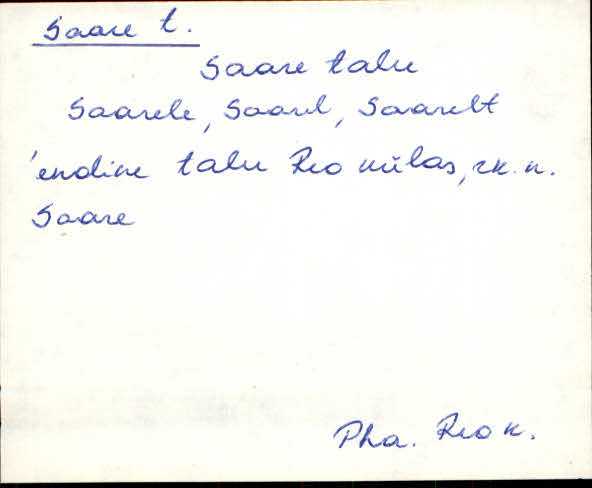 Saare t.
Saare talu
Saarele, Saarel, Saarelt
'endine talu Reo külas, rk. n.
Saare
Pha. Reo k.